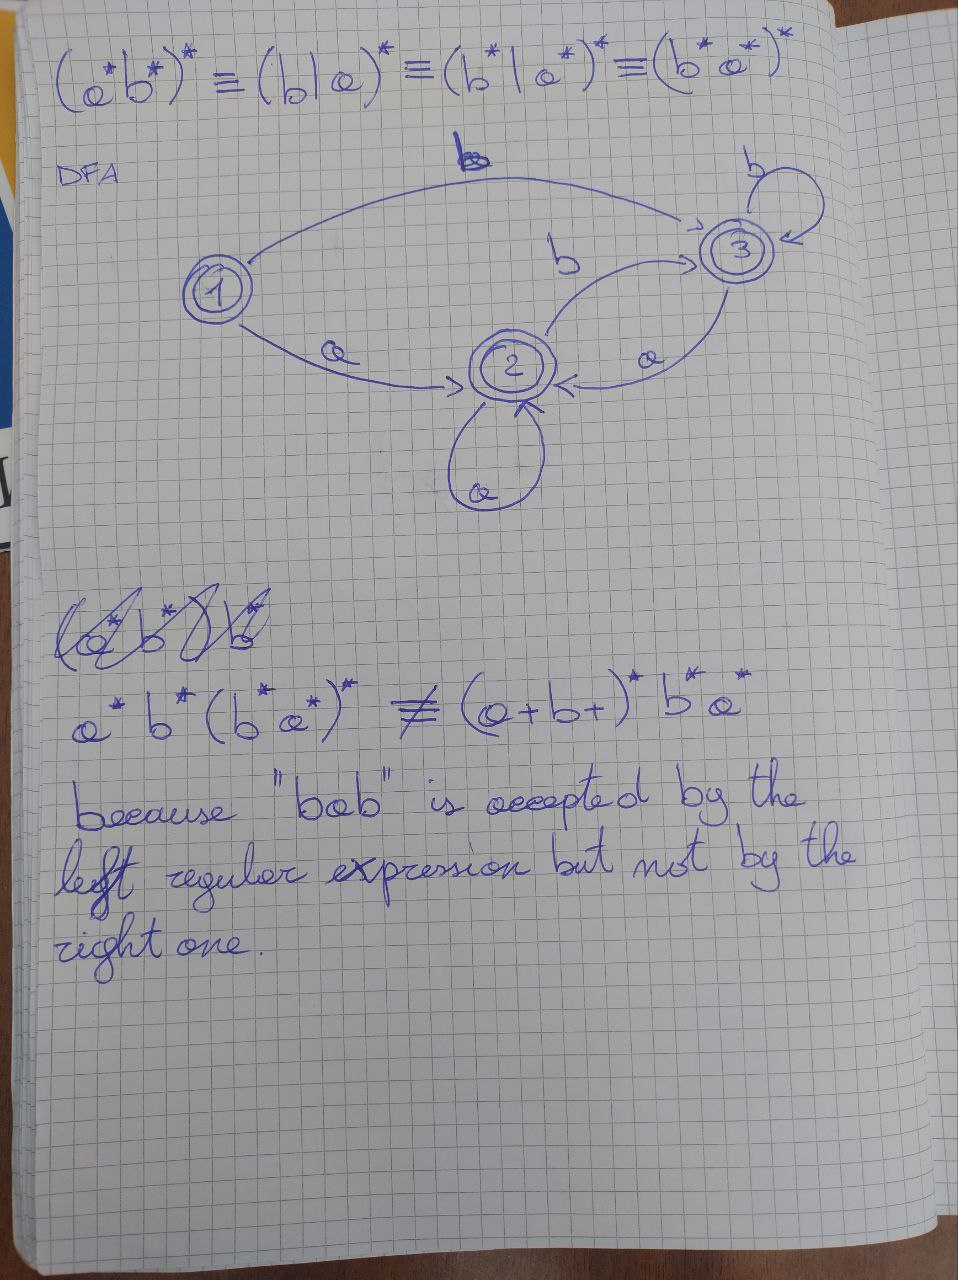 (a*b*)* ≡ (b|a)* ≡ (b*|a*)* ≡ (b*a*)*
DFA
b
b
b
1
3
a
2
a
a
(a*b*)b*
a* b* (b*a*)* ≢ (a+b+)* b*a*
because "bab" is accepted by the
left regular expression but not by the
right one.